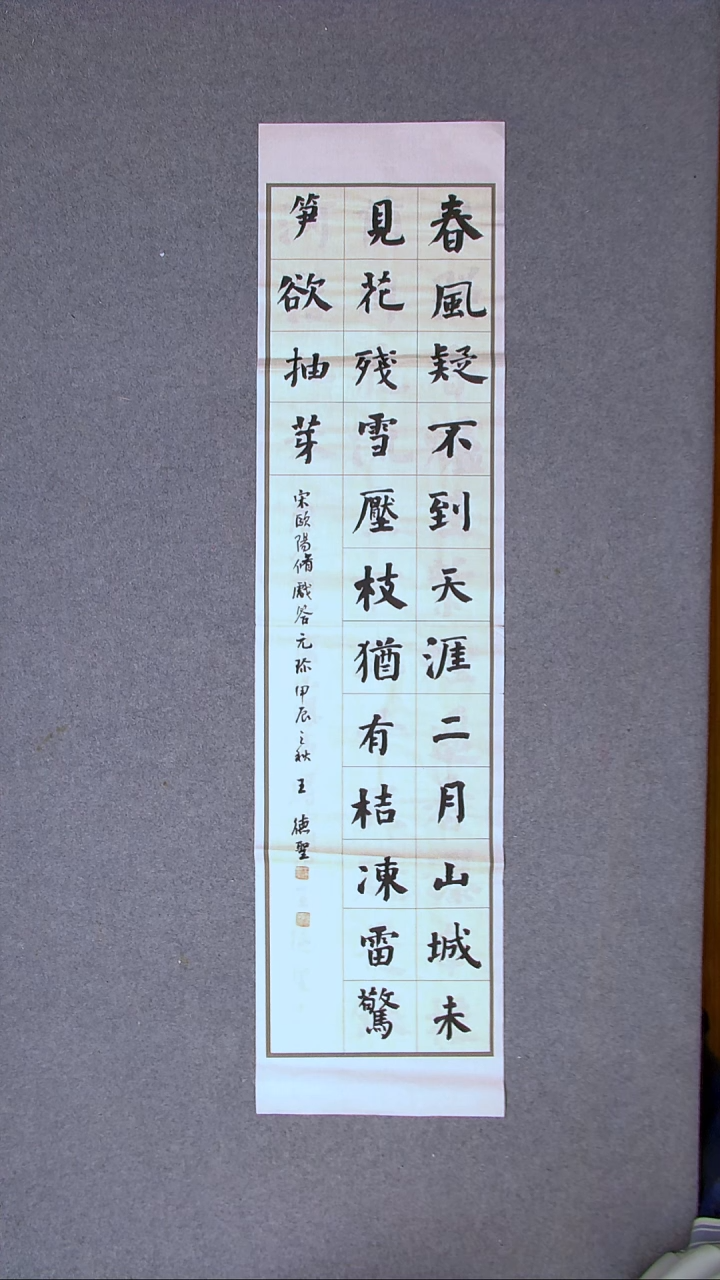 春風疑不到天涯二月山城未
見花殘雪壓枝猶有桔凍雷驚
笋欲抽芽
宋欧陽脩戲答元珍甲辰之秋王德聖